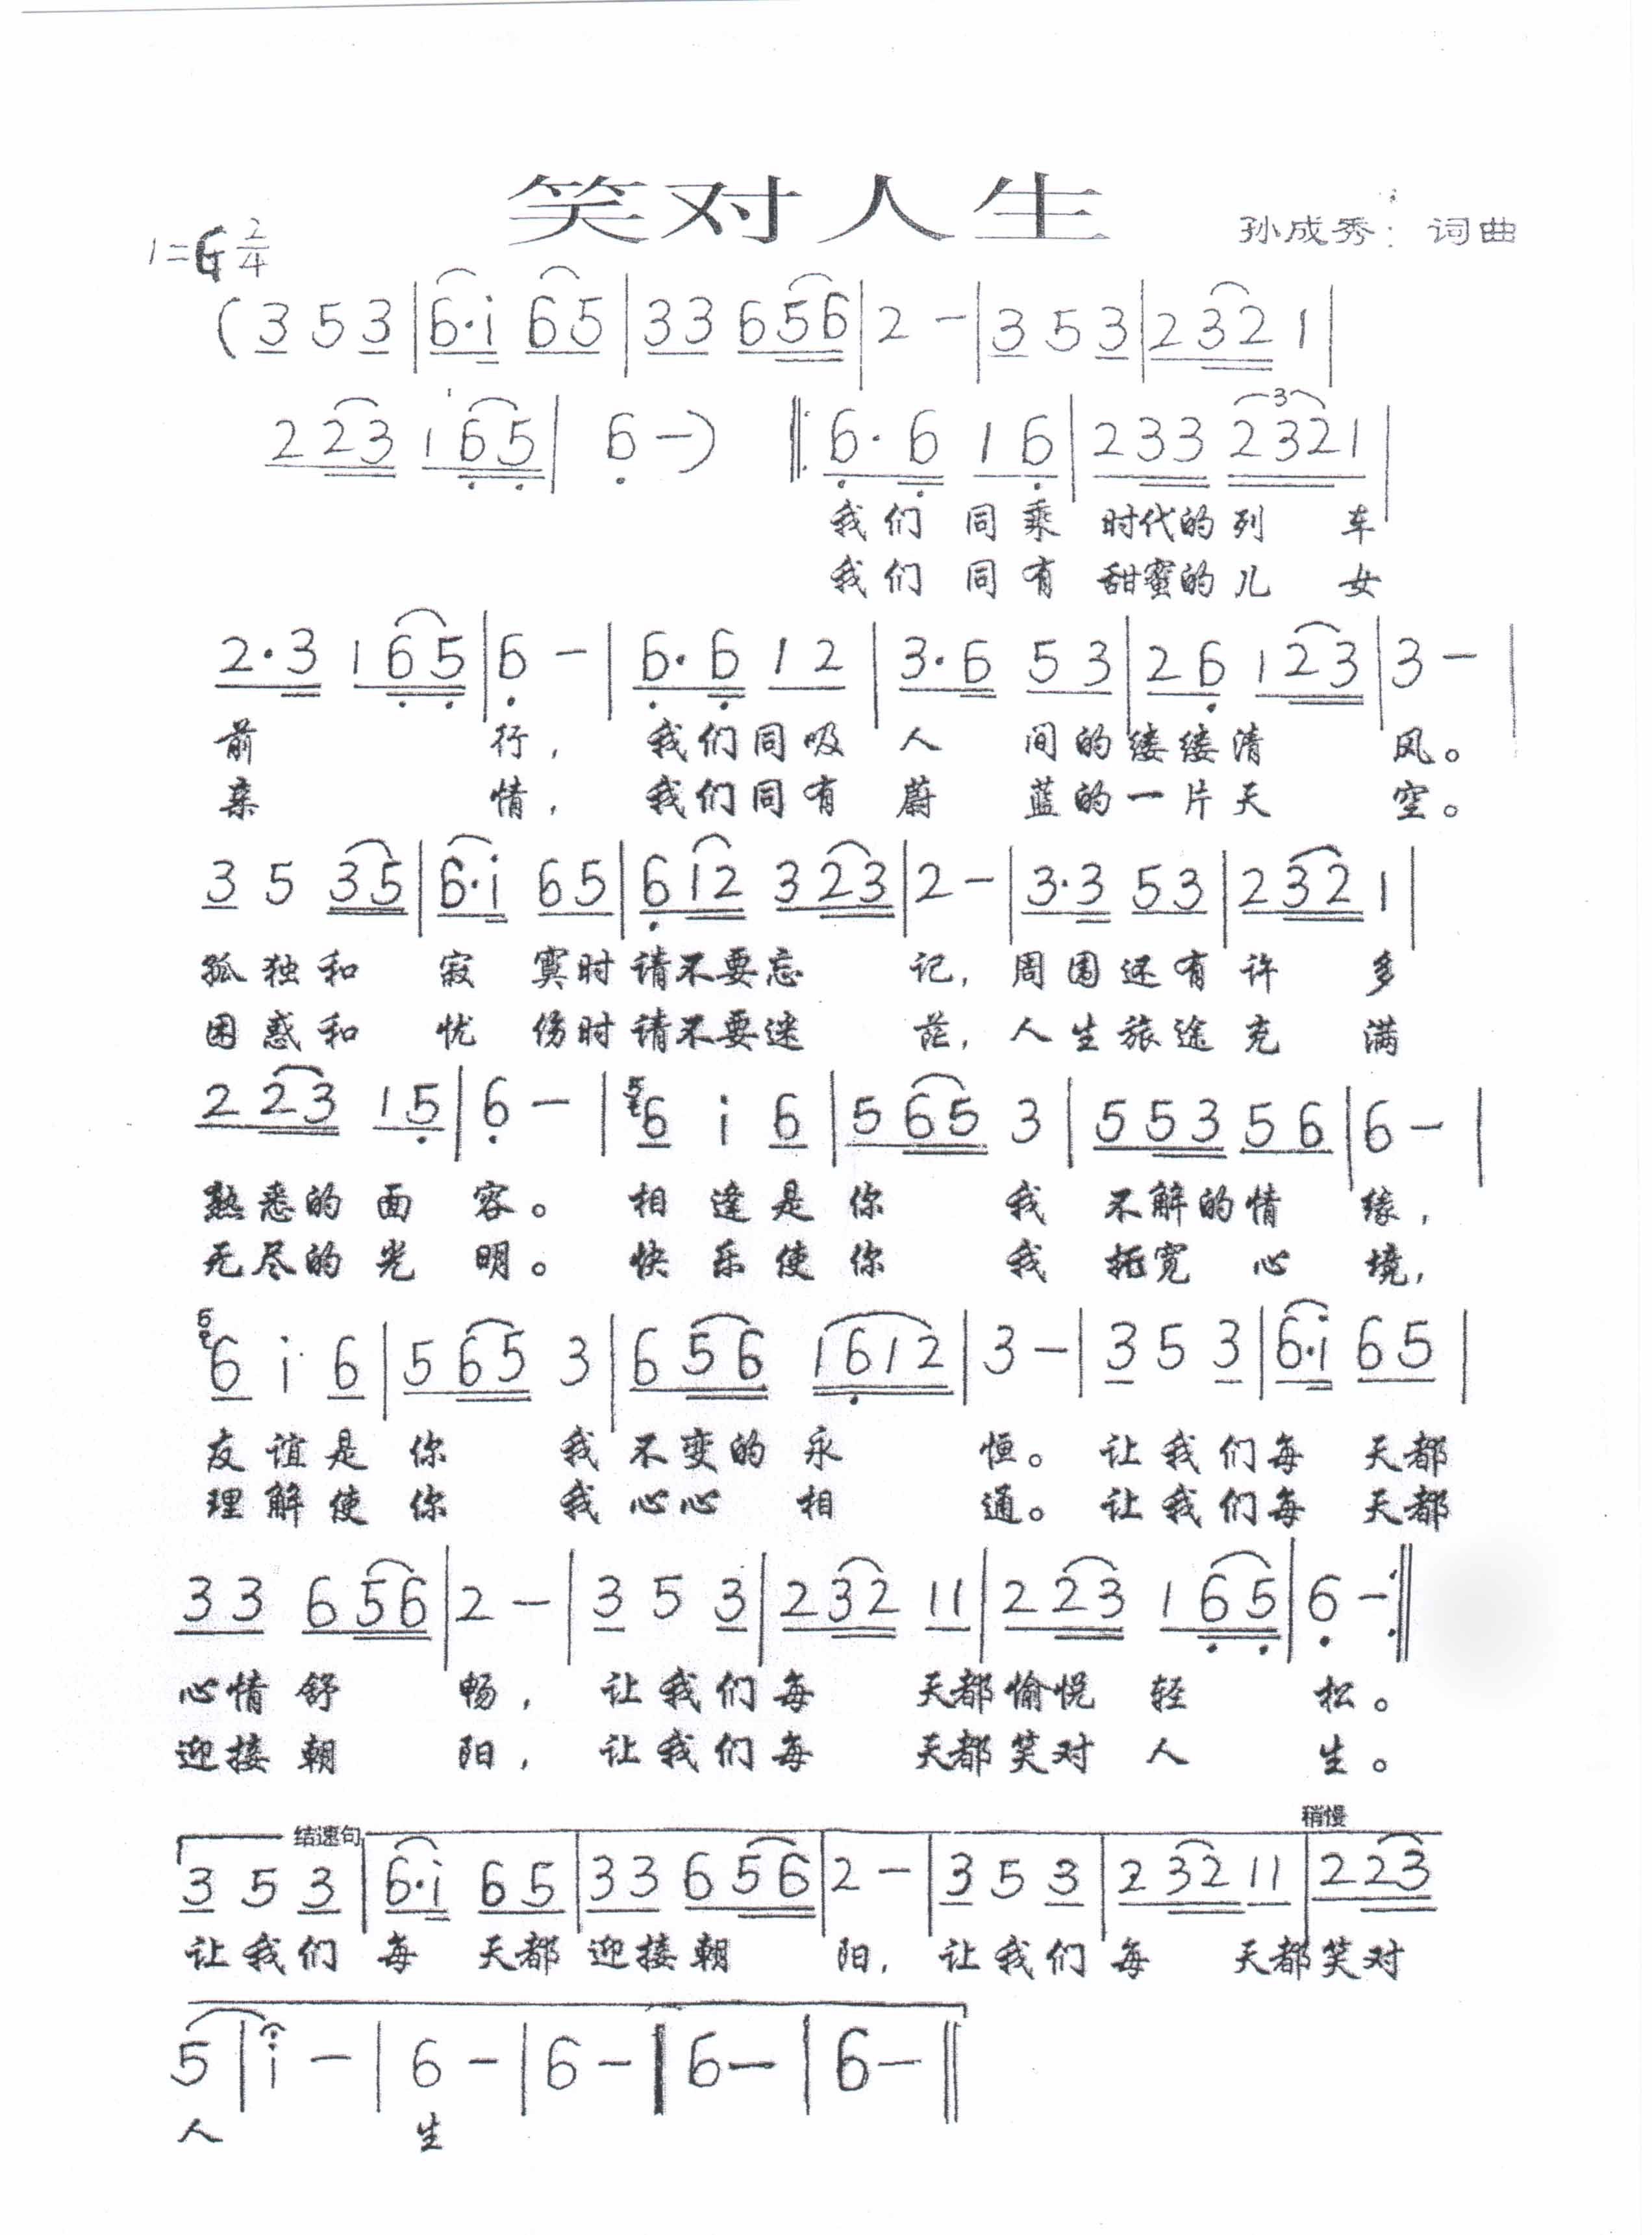 笑对人生
1=G 2/4
孙成秀: 词曲
(3 5 3 | 6·i 65 | 33 656 | 2 - | 3 5 3 | 232 1 |
223 165 | 6 -) ‖: 6·6 16 | 233 2321 |
我们 同乘 时代的列 车
我们 同有 甜蜜的儿 女
2·3 165 | 6 - | 6·6 12 | 3·6 53 | 26 123 | 3 - |
前 行, 我们同吸 人 间的缕缕清 风。
亲 情, 我们同有 蔚 蓝的一片天 空。
3 5 35 | 6·i 65 | 612 323 | 2 - | 3·3 53 | 232 1 |
孤独和 寂 寞时请不要忘 记, 周围还有许 多
困惑和 忧 伤时请不要迷 茫, 人生旅途充 满
223 15 | 6 - | 5 6 i 6 | 565 3 | 553 56 | 6 - |
熟悉的面 容。 相逢是你 我 不解的情 缘,
无尽的光 明。 快乐使你 我 拓宽心 境,
5 6 i 6 | 565 3 | 656 1612 | 3 - | 3 5 3 | 6·i 65 |
友谊是你 我不变的永 恒。 让我们每 天都
理解使你 我心心 相 通。 让我们每 天都
33 656 | 2 - | 3 5 3 | 232 11 | 223 165 | 6 - :‖
心情舒 畅, 让我们每 天都愉悦轻 松。
迎接朝 阳, 让我们每 天都笑对人 生。
结速句 稍慢
3 5 3 | 6·i 65 | 33 656 | 2 - | 3 5 3 | 232 11 | 223
让我们 每 天都 迎接朝 阳, 让我们每 天都笑对
5 | i - | 6 - | 6 - | 6 - | 6 - ‖
人 生